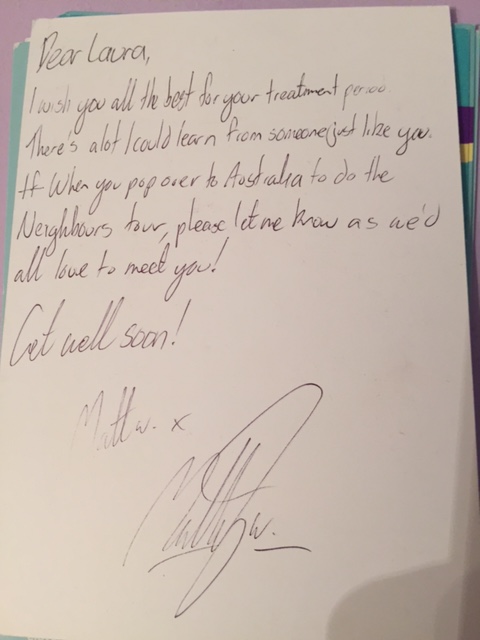 Dear Laura,
I wish you all the best for your treatment period.
There's alot I could learn from someone just like you.
If When you pop over to Australia to do the
Neighbours tour, please let me know as we'd
all love to meet you!
Get well soon!
Matt w. x
Matt w.